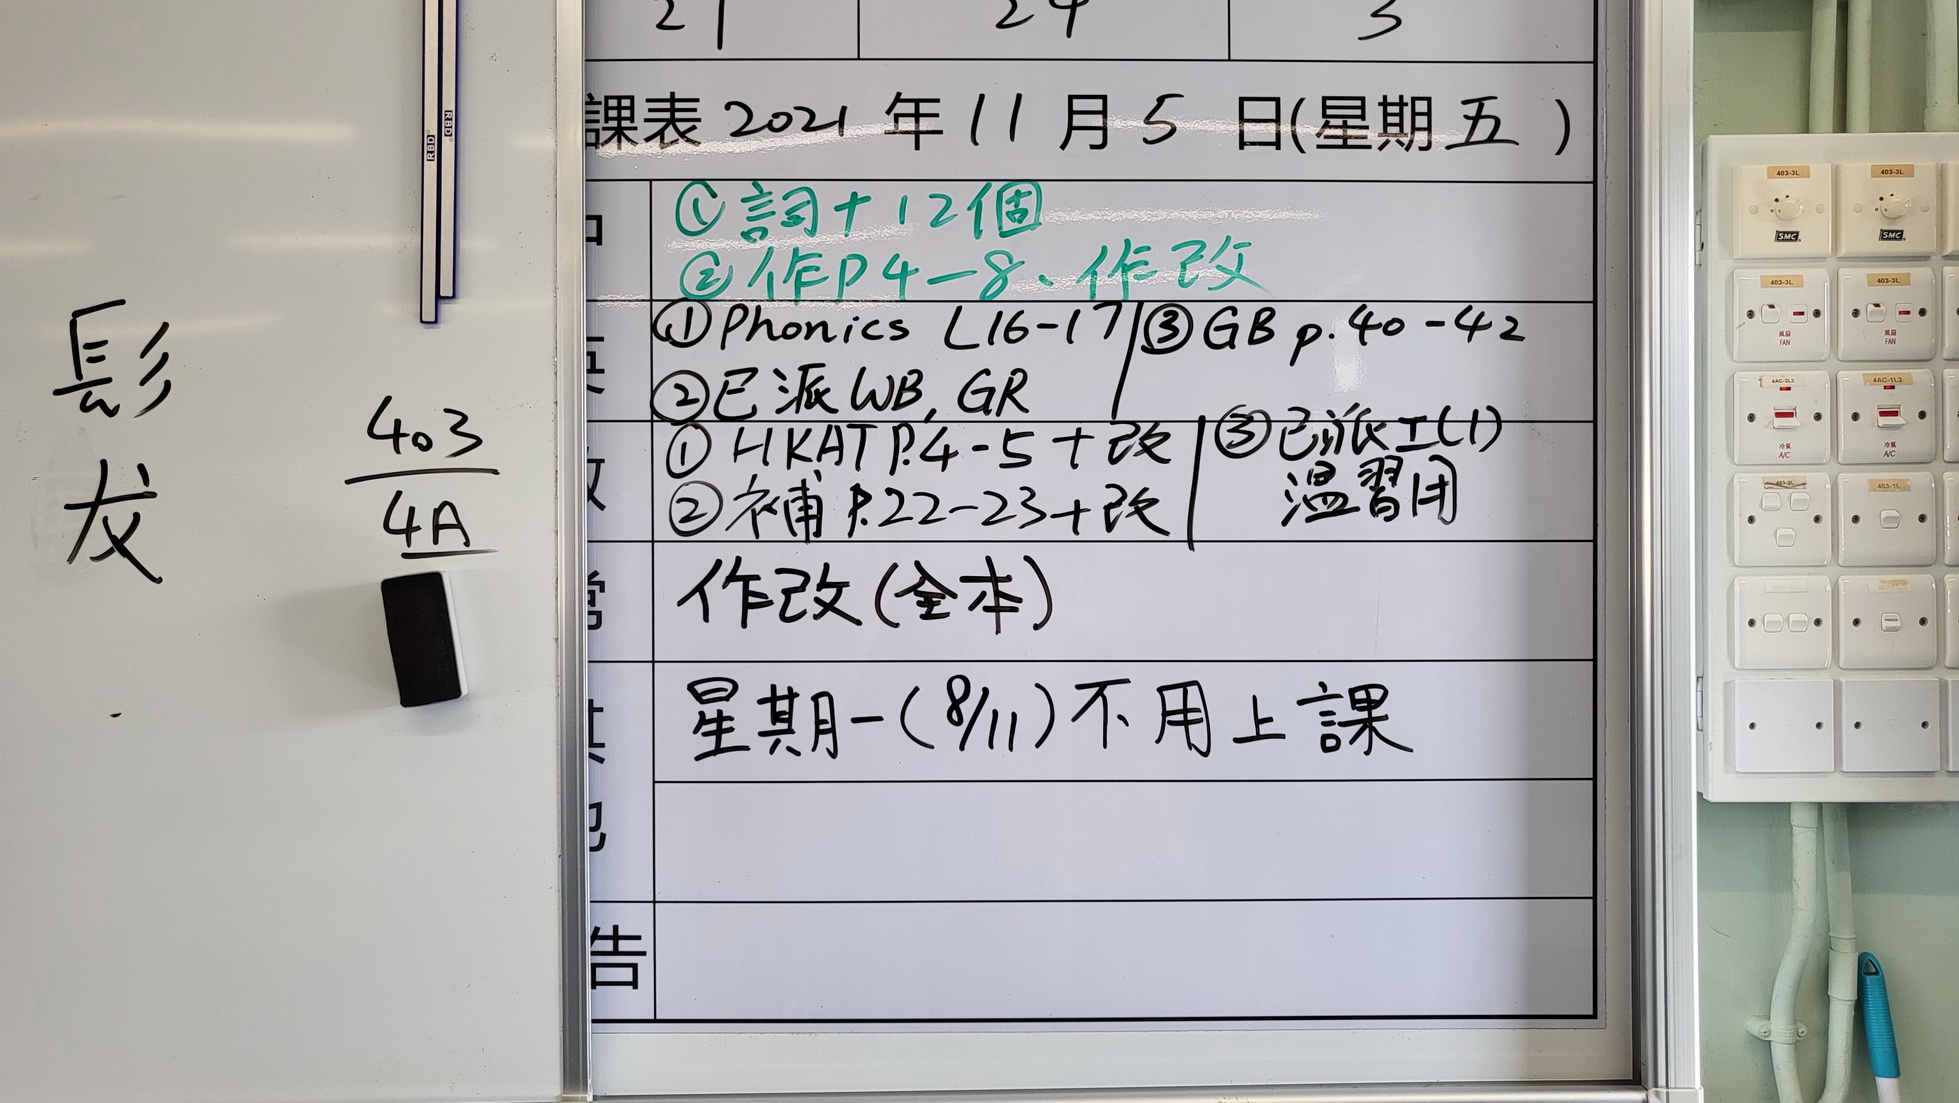 21 24 3
課表 2021 年 11 月 5 日(星期五)
① 詞+12個
② 作P4-8、作改
① Phonics L16-17 ③ GB p.40-42
② 已派WB, GR
① HKAT P.4-5+改 ③ 已派工(1)
② 補 P.22-23+改 溫習用
作改(全本)
星期一(8/11)不用上課
告
镸彡
犮
403
4A
RBD
RBD
403-3L 403-3L
SMC SMC
403-3L 403-3L
風扇 風扇
FAN FAN
4AC-2L3 4AC-1L3
冷氣 冷氣
A/C A/C
403-2L 403-1L
PRESS